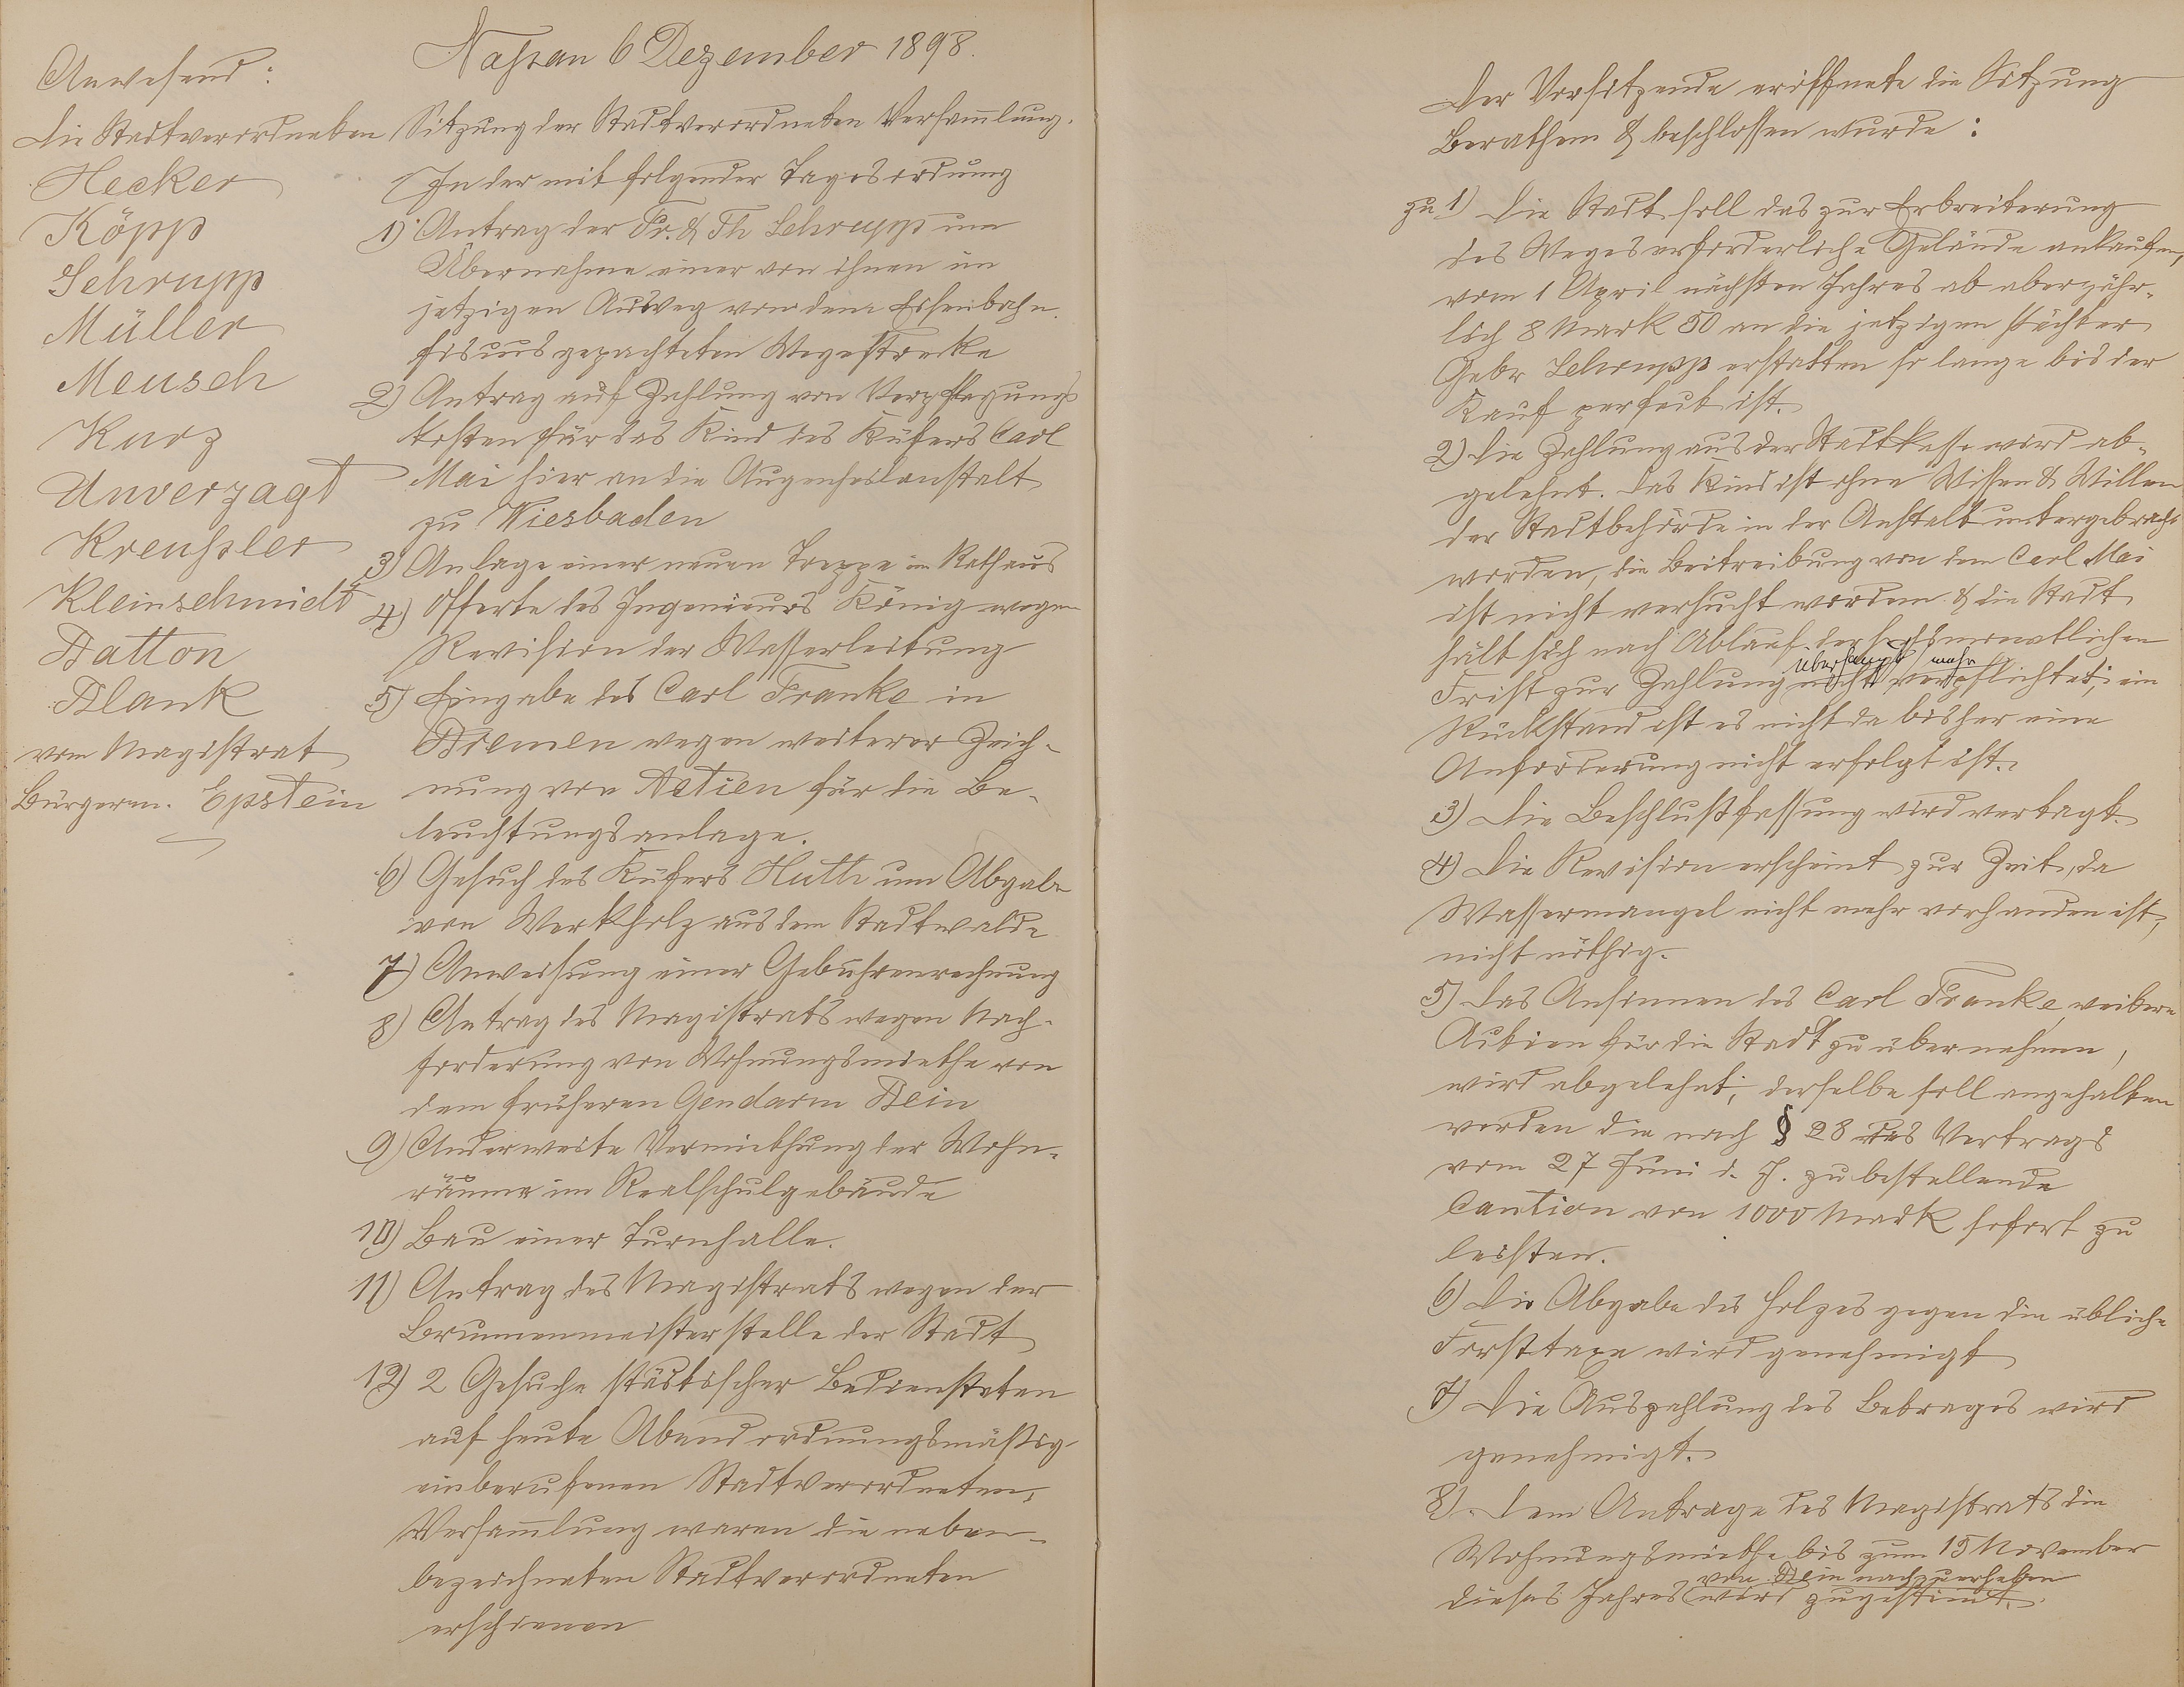 Anwesend:
Die Stadtverordneten
Hecker
Köpp
Schrupp
Müller
Meusch
Kurz
Unverzagt
Kreußler
Kleinschmidt
Batton
Blank
vom Magistrat
Bürgerm. Epstein
Nassau 6 Dezember 1898.
Sitzung der Stadtverordneten Versam̄lung.
In der mit folgender Tagesordnung
1) Antrag der Fr. & Th Schrupp um
Übernahme einer von ihnen im
jetzigen Ausweg von dem Eisenbahn-
fiscus gepachteten Wegestrecke
2) Antrag auf Zahlung von Verpflegungs
kosten für das Kind des Küfers Carl
Mai hier an die Augenheilanstalt
zu Wiesbaden
3) Anlage einer neuen Treppe im Rathaus
4) Offerte des Ingenieurs König wegen
Revision der Wasserleitung
5) Eingabe des Carl Franke in
Bremen wegen weiterer Zeich-
nung von Actien für die Be-
leuchtungsanlage.
6) Gesuch des Küfers Huth um Abgabe
von Werkholz aus dem Stadtwalde
7) Anweisung einer Gebührenrechnung
8) Antrag des Magistrats wegen Nach-
forderung von Wohnungsmiethe von
dem früheren Gendarm Bein
9) Anderweite Vermiethung der Wohn-
räume im Realschulgebäude
10) Bau einer Turnhalle.
11) Antrag des Magistrats wegen der
Brunnenmeisterstelle der Stadt
12) 2 Gesuche städtischer Bediensteten
auf heute Abend ordnungsmäßig
einberufenen Stadtverordneten-
Versam̄lung waren die neben-
bezeichneten Stadtverordneten
erschienen
Der Vorsitzende eröffnete die Sitzung
Berathen & beschlossen wurde:
zu 1) Die Stadt soll das zur Erbreiterung
des Weges erforderliche Gelände ankaufen,
vom 1 April nächsten Jahres ab aber jähr-
lich 8 Mark 50 an die jetzigen Pächter
Gebr Schrupp erstatten so lange bis der
Kauf perfect ist.
2) Die Zahlung aus der Stadtkasse wird ab-
gelehnt. Das Kind ist ohne Wissen & Willen
der Stadtbehörde in der Anstalt untergebracht
worden, die Beitreibung von dem Carl Mai
ist nicht versucht worden & die Stadt
hält sich nach Ablauf der sechsmonatlichen
überhaupt mehr
Frist zur Zahlung nicht verpflichtet; ein
Rückstand ist es nicht da bisher eine
Anforderung nicht erfolgt ist.
3) Die Beschlußfassung wird vertagt.
4) Die Revision erscheint zur Zeit, da
Wassermangel nicht mehr vorhanden ist,
nicht nöthig.
5) Das Ansinnen des Carl Franke, weitere
Actien für die Stadt zu übernehmen,
wird abgelehnt; derselbe soll angehalten
werden die nach § 28 des Vertrags
vom 27 Juni d. J. zu bestellende
Caution von 1000 Mark sofort zu
leisten.
6) Die Abgabe des Holzes gegen die übliche
Forsttaxe wird genehmigt
7) Die Auszahlung des Betrages wird
genehmigt.
8) Dem Antrage des Magistrats die
Wohnungsmiethe bis zum 15 November
von Bein nachzuerheben
dieses Jahres wird zugestimt.